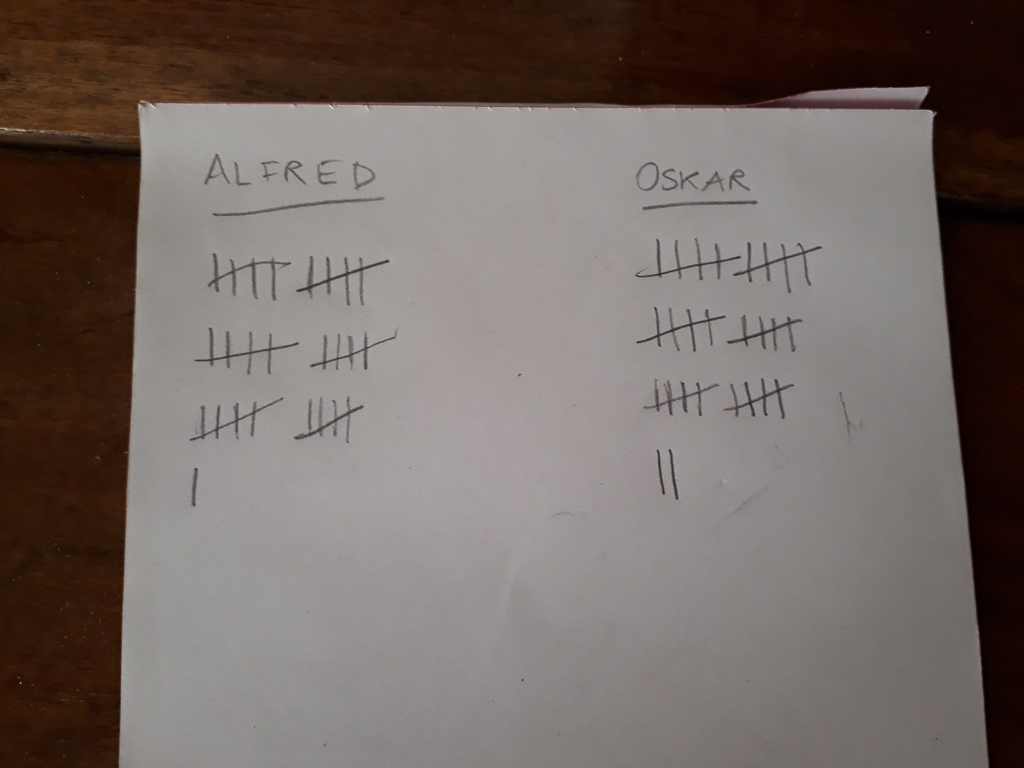 ALFRED OSKAR